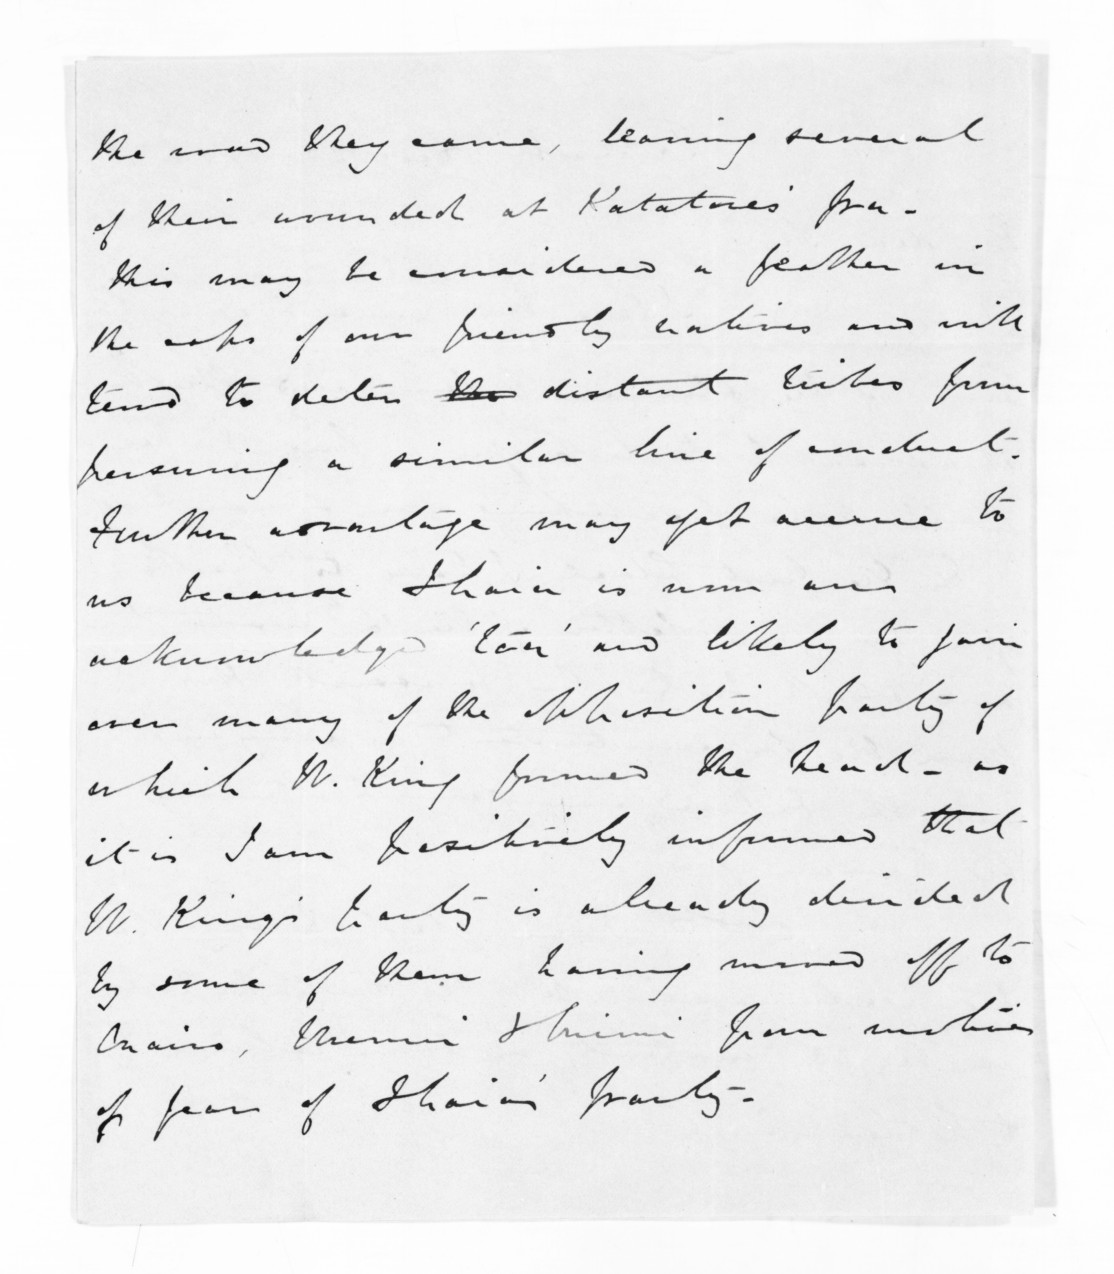 the road they came, leaving several
of their wounded at Katatore's pa -
This may be considered a feather in
the caps of our friendly natives and will
tend to deter the distant tribes from
persuing a similar line of conduct.
Further advantage may yet accrue to
us because Ihaia is now an
acknowledged 'toa' and likely to join
over many of the opposition party of
which W. King formed the head - as
it is I am positively informed that
W. King's party is already divided
by some of them having moved off to
from motives
of fear of Ihaia's party -